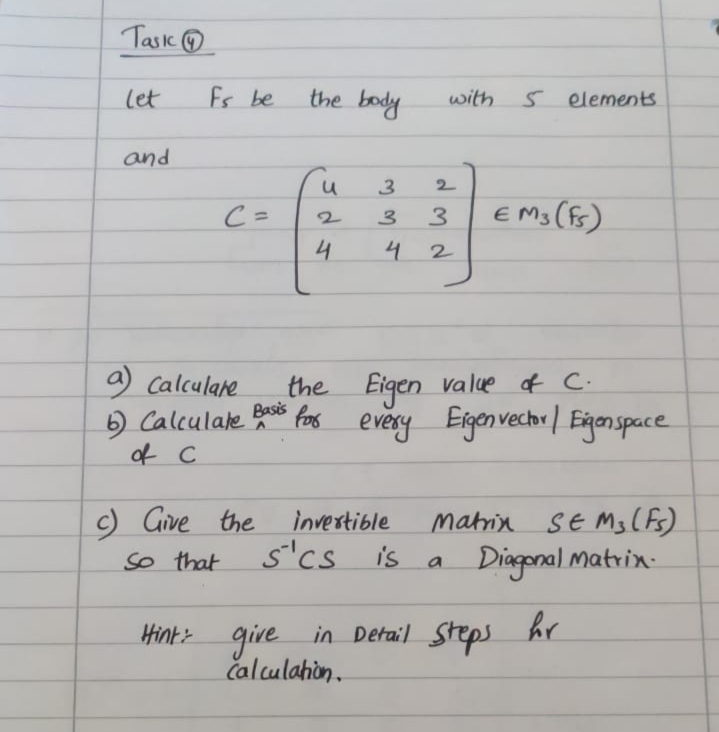 Task ④
Let F5 be the body with 5 elements
and
C = ( 4 3 2
2 3 3 ] ∈ M3 (F5)
4 4 2
a) Calculate the Eigen value of C.
b) Calculate Basis for every Eigenvector / Eigenspace
of C
c) Give the invertible Matrix S ∈ M3 (F5)
so that S⁻¹CS is a Diagonal Matrix.
Hint:- give in Detail Steps for
Calculation.